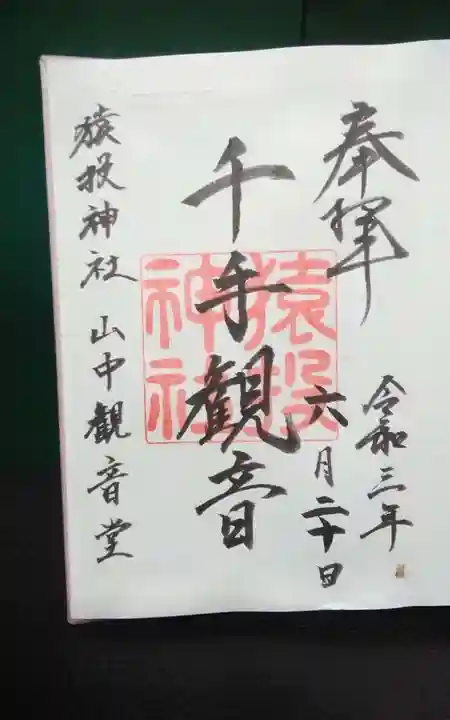 奉拝
令和三年
六月二十日
千手観音
猿投神社
猿投神社 山中観音堂